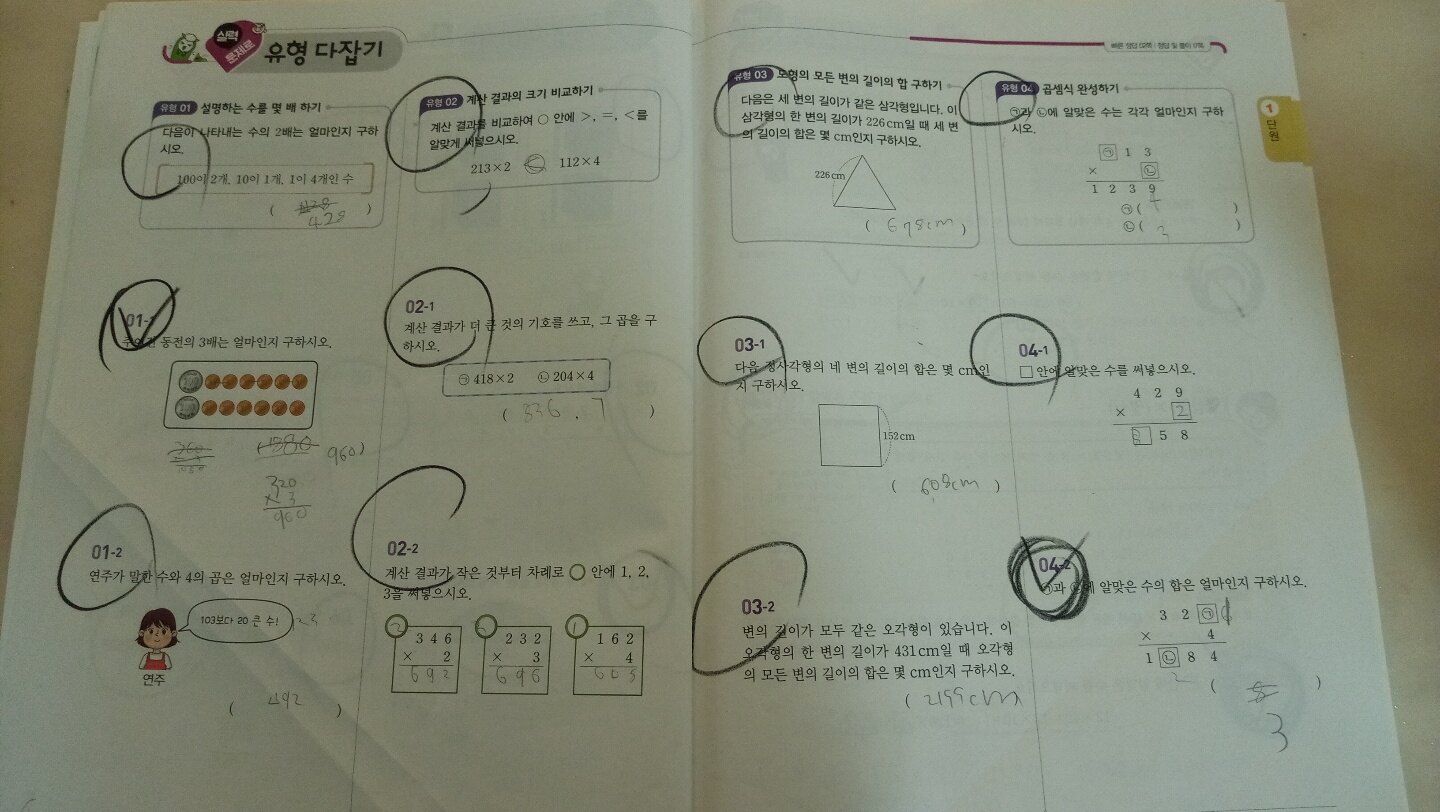 실력
문제로
유형 다잡기
유형 01 설명하는 수를 몇 배 하기
다음이 나타내는 수의 2배는 얼마인지 구하
시오.
100이 2개, 10이 1개, 1이 4개인 수
( 428 )
01-1
주어진 동전의 3배는 얼마인지 구하시오.
960)
320
× 3
960
01-2
연주가 말한 수와 4의 곱은 얼마인지 구하시오.
103보다 20 큰 수!
연주
( 492 )
유형 02 계산 결과의 크기 비교하기
계산 결과를 비교하여 ○ 안에 >, =, <를
알맞게 써넣으시오.
213×2 112×4
02-1
계산 결과가 더 큰 것의 기호를 쓰고, 그 곱을 구
하시오.
㉠ 418×2 ㉡ 204×4
( )
02-2
계산 결과가 작은 것부터 차례로 ○ 안에 1, 2,
3을 써넣으시오.
3 4 6
× 2
6 9 2
2 3 2
× 3
6 9 6
1 6 2
× 4
유형 03 도형의 모든 변의 길이의 합 구하기
다음은 세 변의 길이가 같은 삼각형입니다. 이
삼각형의 한 변의 길이가 226 cm일 때 세 변
의 길이의 합은 몇 cm인지 구하시오.
226 cm
( 678cm )
03-1
다음 정사각형의 네 변의 길이의 합은 몇 cm인
지 구하시오.
152 cm
( 608cm )
03-2
변의 길이가 모두 같은 오각형이 있습니다. 이
오각형의 한 변의 길이가 431 cm일 때 오각형
의 모든 변의 길이의 합은 몇 cm인지 구하시오.
( cm
빠른 정답 02쪽 | 정답 및 풀이
유형 04 곱셈식 완성하기
㉠과 ㉡에 알맞은 수는 각각 얼마인지 구하
시오.
㉠ 1 3
× ㉡
1 2 3 9
㉠( )
㉡( 3 )
04-1
□ 안에 알맞은 수를 써넣으시오.
4 2 9
× 2
5 8
04-2
㉠과 ㉡에 알맞은 수의 합은 얼마인지 구하시오.
3 2 ㉠
× 4
1 ㉡ 8 4
2
( )
3
1
단원